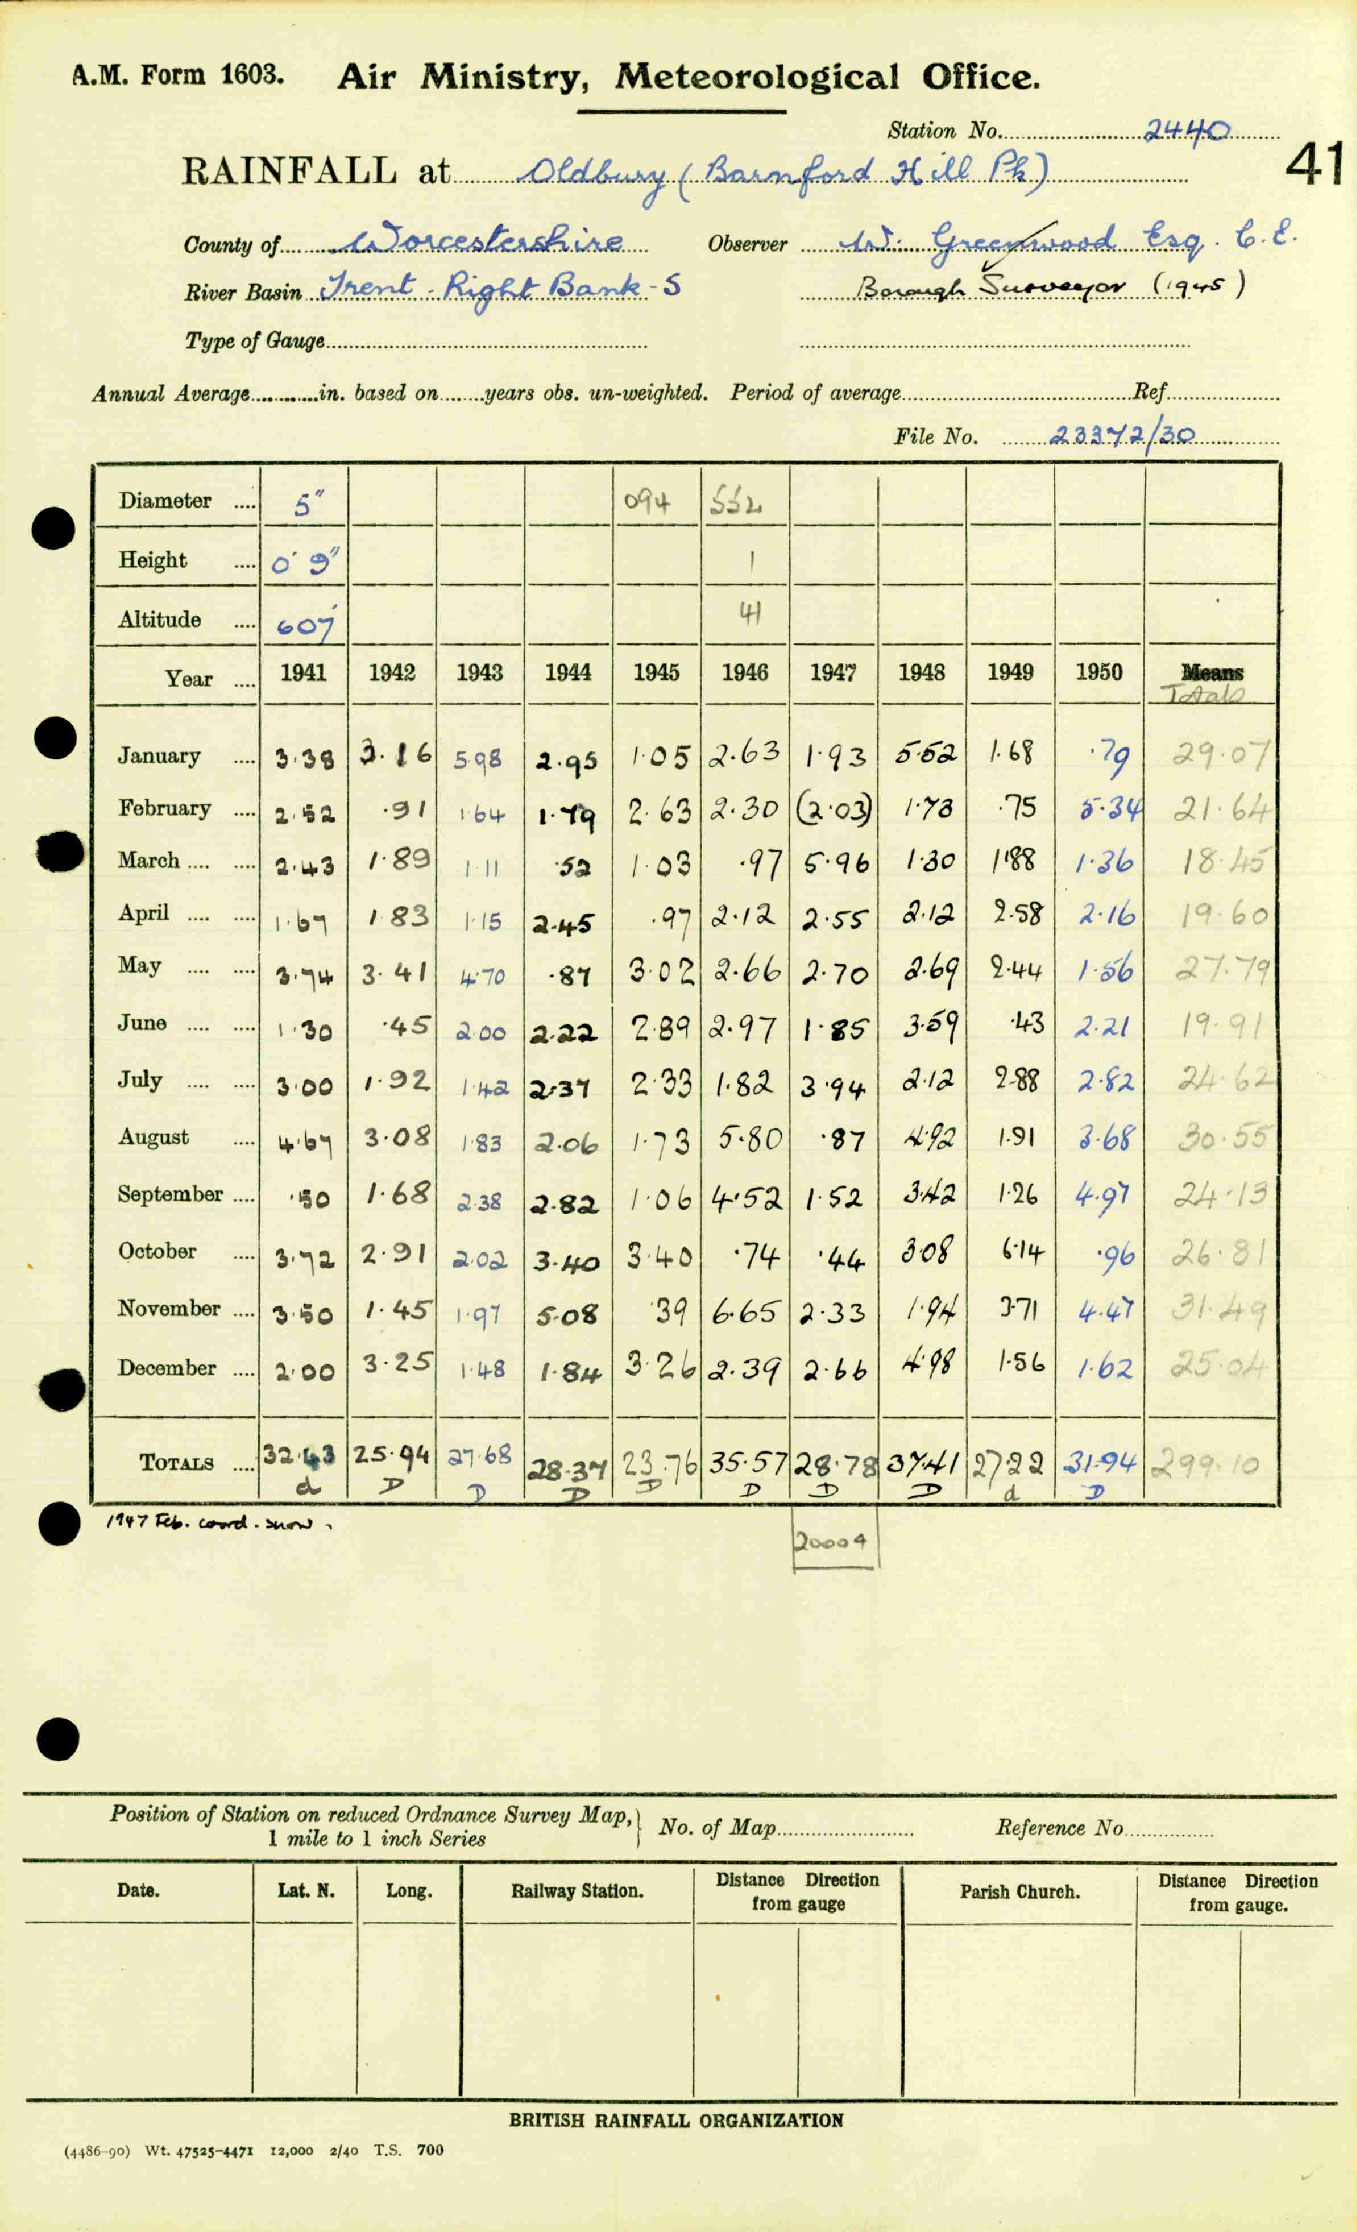 A.M. Form 1603. Air Ministry, Meteorological Office.
Station No. 2440
41
RAINFALL at Oldbury (Barnford Hill Pk)
County of Worcestershire Observer W. Greenwood Esq. C.E.
River Basin Trent - Right Bank - S Borough Surveyor (1945)
Type of Gauge
Annual Average in. based on years obs. un-weighted. Period of average Ref.
File No. 23372/30
Diameter 5" 094 552
Height 0' 9" 1
Altitude 607' 41
Year 1941 1942 1943 1944 1945 1946 1947 1948 1949 1950 Means
Totals
January 3.38 3.16 5.98 2.95 1.05 2.63 1.93 5.52 1.68 .79 29.07
February 2.52 .91 1.64 1.79 2.63 2.30 (2.03) 1.73 .75 5.34 21.64
March 2.43 1.89 1.11 .52 1.03 .97 5.96 1.30 1.88 1.36 18.45
April 1.67 1.83 1.15 2.45 .97 2.12 2.55 2.12 2.58 2.16 19.60
May 3.74 3.41 4.70 .87 3.02 2.66 2.70 2.69 2.44 1.56 27.79
June 1.30 .45 2.00 2.22 2.89 2.97 1.85 3.59 .43 2.21 19.91
July 3.00 1.92 1.42 2.37 2.33 1.82 3.94 2.12 2.88 2.82 24.62
August 4.67 3.08 1.83 2.06 1.73 5.80 .87 4.92 1.91 3.68 30.55
September .50 1.68 2.38 2.82 1.06 4.52 1.52 3.42 1.26 4.97 24.13
October 3.72 2.91 2.02 3.40 3.40 .74 .44 3.08 6.14 .96 26.81
November 3.50 1.45 1.97 5.08 .39 6.65 2.33 1.94 3.71 4.47 31.49
December 2.00 3.25 1.48 1.84 3.26 2.39 2.66 4.98 1.56 1.62 25.04
TOTALS 32.43 25.94 27.68 28.37 23.76 35.57 28.78 37.41 27.22 31.94 299.10
d D D D D D D D d D
1947 Feb. coord. snow.
20004
Position of Station on reduced Ordnance Survey Map, No. of Map Reference No.
1 mile to 1 inch Series
Date. Lat. N. Long. Railway Station. Distance from gauge Direction Parish Church. Distance from gauge. Direction
BRITISH RAINFALL ORGANIZATION
(4486-90) Wt. 47525-4471 12,000 2/40 T.S. 700